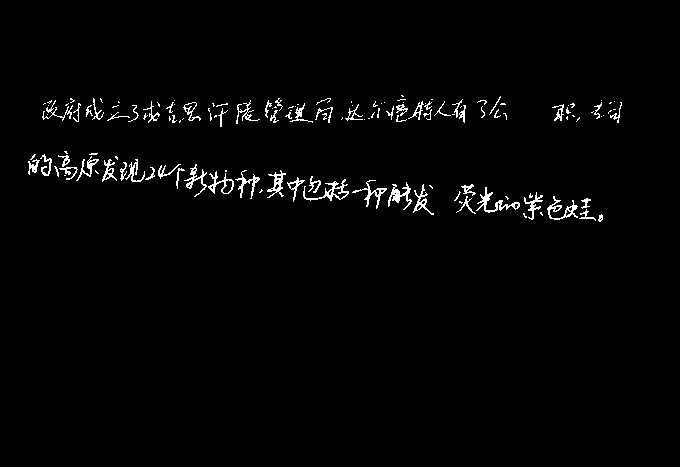 政府成立了成吉思汗陵管理局,达尔扈特人有了公 职,专司
的高原发现24个新物种,其中包括一种能发 荧光的紫色蛙。